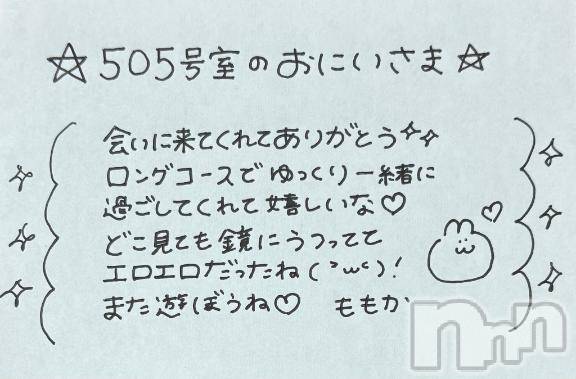 ☆505号室のおにいさま☆
会いに来てくれてありがとう✧✧
ロングコースでゆっくり一緒に
過ごしてくれて嬉しいな♡
どこ見ても鏡にうつってて
エロエロだったね(˃ω˂)!
また遊ぼうね♡ ももか
nnn